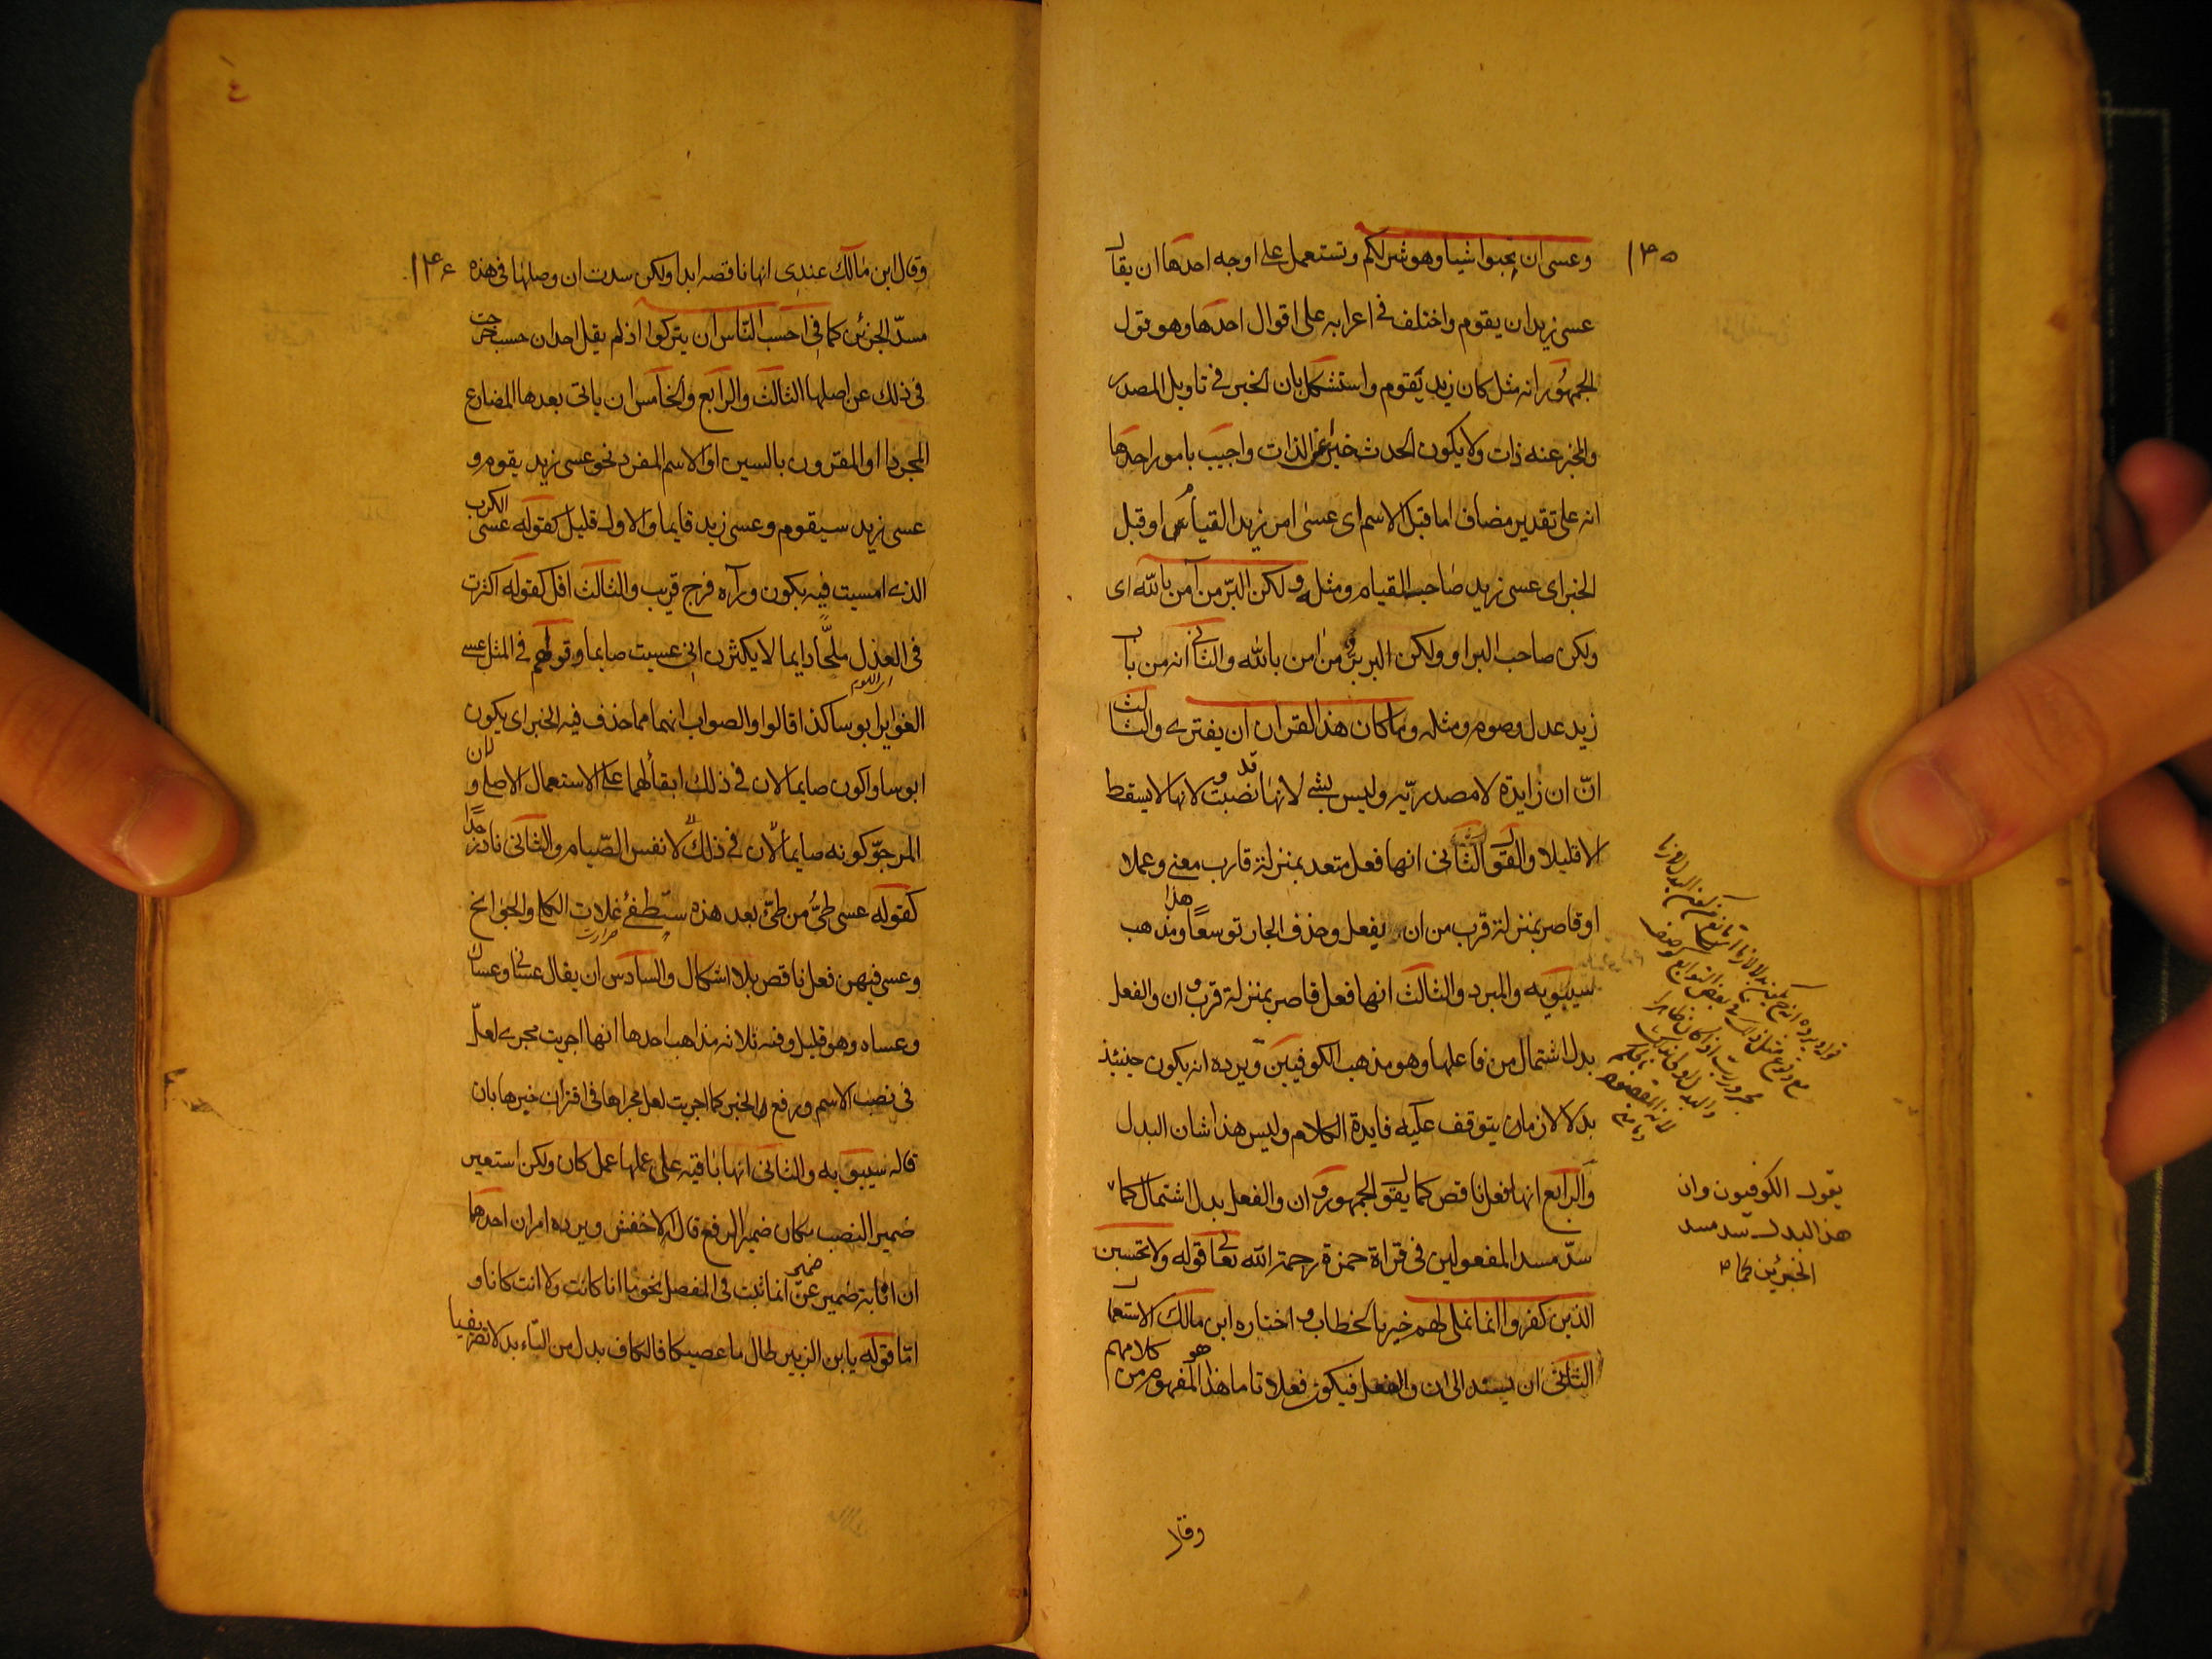 ١٣٥
وعسى ان تحبوا شيا وهو شر لكم وتستعمل على اوجه احدها ان يقال
عسى زيد ان يقوم واختلف فى اعرابه على اقوال احدها وهو قول
الجمهور انه مثل كان زيد يقوم واستشكل بان الخبر فى تاويل المصدر
والمخبر عنه ذات ولا يكون الحدث خبرا عن الذات واجيب بامور احدها
انه على تقدير مضاف اما قبل الاسم اى عسى امر زيد القيام او قبل
الخبر اى عسى زيد صاحب القيام ومثله ولكن البر من آمن بالله اى
ولكن صاحب البر او ولكن البر بر من امن بالله والثانى انه من باب
زيد عدل وصوم ومثله وما كان هذا القران ان يفترى والثالث
ان ان زايدة لا مصدرية وليس بشى لانها قد نصبت و لانها لا يسقط
الا قليلا والقول الثانى انها فعل متعد بمنزلة قارب معنى وعملا
او قاصر بمنزلة قرب من ان يفعل وحذف الجار توسعا وهذا مذهب
سيبويه والمبرد والثالث انها فعل قاصر بمنزلة قرب و ان والفعل
بدل اشتمال من فاعلها وهو مذهب الكوفيين ويرده انه يكون حينئذ
بدلا لازما يتوقف عليه فايدة الكلام وليس هذا شان البدل
والرابع انها فعل ناقص كما يقول الجمهور و ان والفعل بدل اشتمال كما
سدّ مسد المفعولين فى قراة حمزة رحمة الله تعالى قوله ولا تحسبن
الذين كفروا انما نملى لهم خير بالخطاب و اختاره ابن مالك الاستعمال
الثانى ان يسند الى ان والفعل فيكون فعلا تاما هذا هو المفهوم من كلامهم
يقول الكوفيون وان
هذا البدل سد مسد
الجزئين كما
وقال
١٣٦
وقال ابن مالك عندى انها ناقصه ابدا ولكن سدت ان وصلتها فى هذه
مسدّ الجزئين كما فى احسب الناس ان يتركوا اذ لم يقل احد ان حسب خرجت
فى ذلك عن اصلها الثالث والرابع والخامس ان ياتى بعدها المضارع
المجرد او المقرون بالسين او الاسم المفرد نحو عسى زيد يقوم و
عسى زيد سيقوم وعسى زيد قايما والاول قليل كقوله عسى الكرب
الذى امسيت فيه يكون ورآءه فرج قريب والثالث اقل كقوله اكثرت
فى العذل ملحّا دايما لا يكثرن انى عسيت صايما وقولهم فى المثل عسى
الغوير ابوسا كذا قالوا والصواب انهما مما حذف فيه الخبر اى يكون
ابوسا واكون صايما لان فى ذلك ابقأ لهما على الاستعمال الاصلى و لان
المرجوّ كونه صايما لان فى ذلك لا نفس الصّيام والثانى نادر جدا
كقوله عسى طىّ من طىّ بعد هذه ستطفئ غلات الكلا والجوانح
وعسى فيهن فعل ناقص بلا اشكال والسادس ان يقال عسانى وعساك
وعساه وهو قليل وفيه ثلاثه مذاهب احدها انها اجريت مجرى لعلّ
فى نصب الاسم ورفع الخبر كما اجريت لعل مجراها فى اقتران خبرها بان
قاله سيبويه والثانى انها باقيه على عملها عمل كان ولكن استعير
ضمير النصب مكان ضمير الرفع قاله الاخفش ويرده امران احدهما
ان انابة ضمير عن ضمير انما ثبت فى المنفصل نحو ما انا كانت ولا انت كانا و
امّا قوله يابن الزبير طال ما عصيكا فالكاف بدل من التاء بدلا تصريفيا